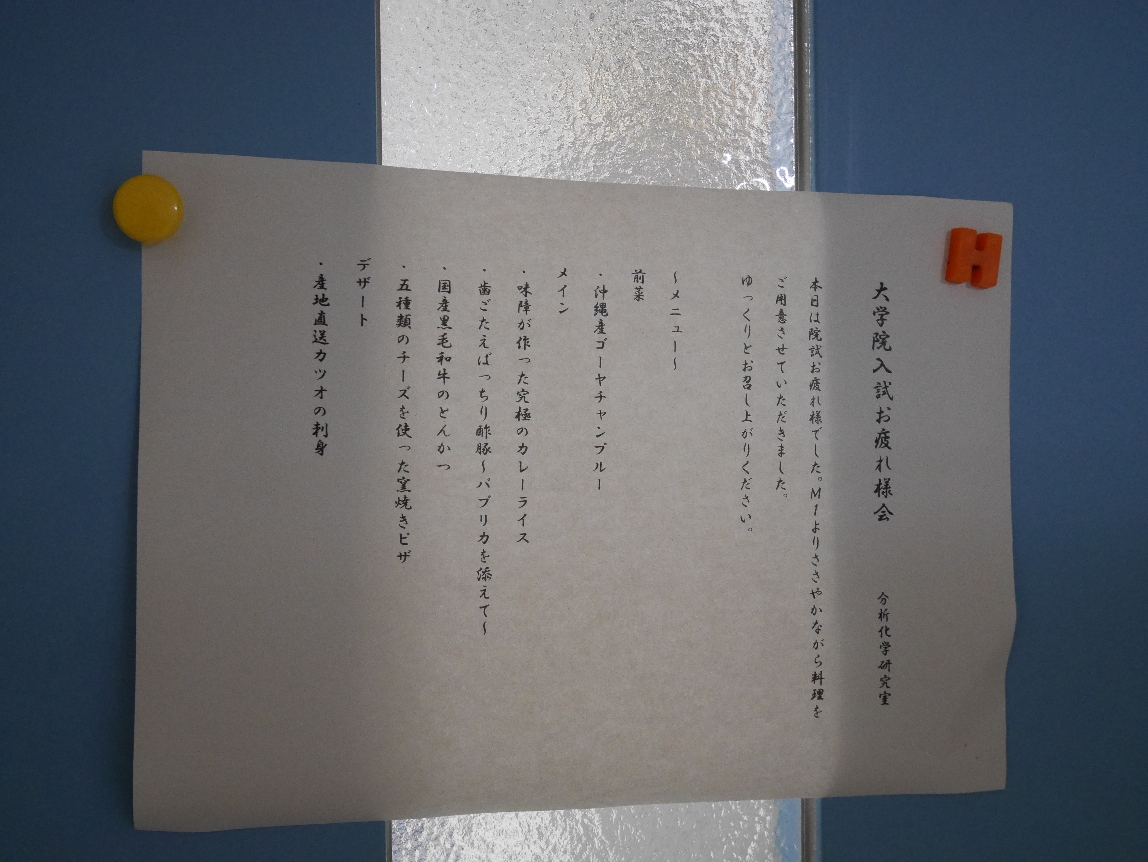 大学院入試お疲れ様会　分析化学研究室
本日は院試お疲れ様でした。M1よりささやかながら料理を
ご用意させていただきました。
ゆっくりとお召し上がりください。
～メニュー～
前菜
・沖縄産ゴーヤチャンプルー
メイン
・味障が作った究極のカレーライス
・歯ごたえばっちり酢豚～パプリカを添えて～
・国産黒毛和牛のとんかつ
・五種類のチーズを使った窯焼きピザ
デザート
・産地直送カツオの刺身
H